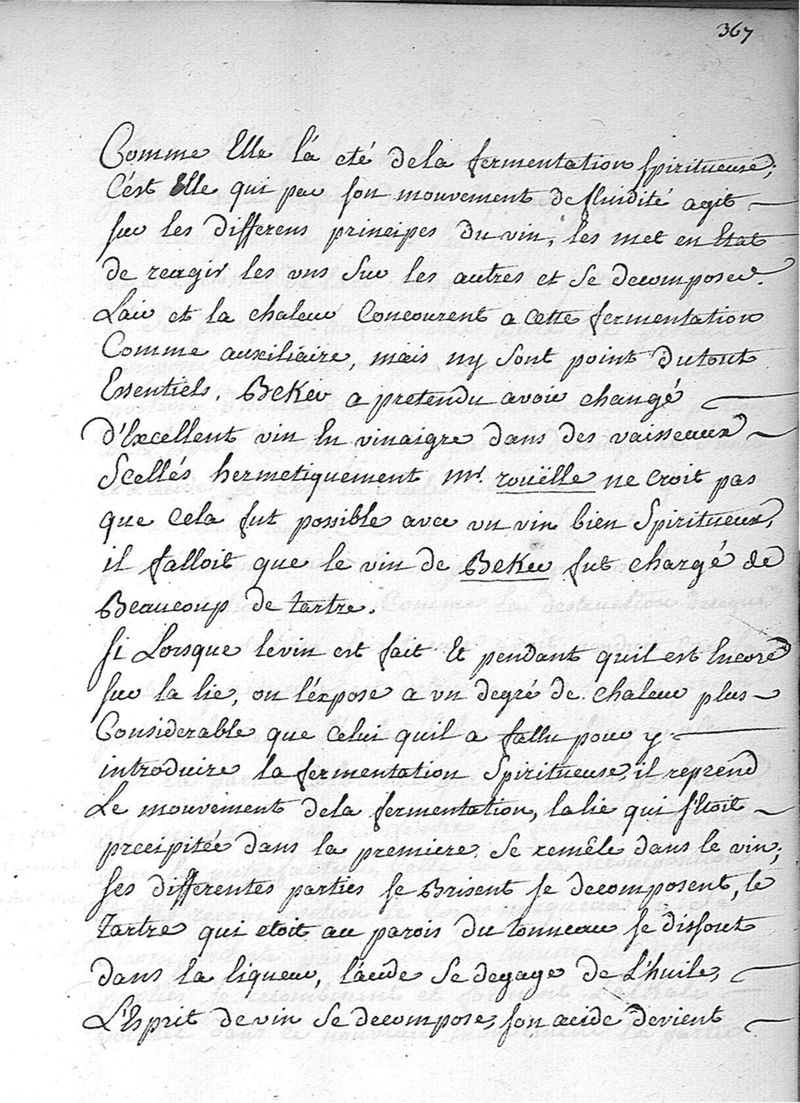 367
Comme Elle la été dela fermentation spiritueuse;
C'est Elle qui par son mouvement de fluidité agit
sur les differens principes du vin, les met en Etat
de reagir les uns sur les autres et se decomposer.
L'air et la chaleur Concourent a cette fermentation
Comme auxiliaire, mais ny sont point du tout
Essentiels. Beker a pretendu avoir changé
d'Excellent vin En vinaigre dans des vaisseaux
Scellés hermetiquement mr. rouëlle ne Croit pas
que Cela fut possible avec un vin bien Spiritueux,
il falloit que le vin de Beker fut chargé de
Beaucoup de tartre.
si Lorsque le vin est fait Et pendant quil est Encore
sur la lie, on l'expose a un degré de chaleur plus
Considerable que Celui quil a fallu pour y
introduire la fermentation Spiritueuse, il reprend
Le mouvement dela fermentation, la lie qui s'Etoit
precipitée dans la premiere se remêle dans le vin,
ses differentes parties se Brisent se decomposent, le
tartre qui etoit au parois du tonneau se dissout
dans la liqueur, l'acide se degage de L'huile,
L'Esprit de vin se decompose, son acide devient